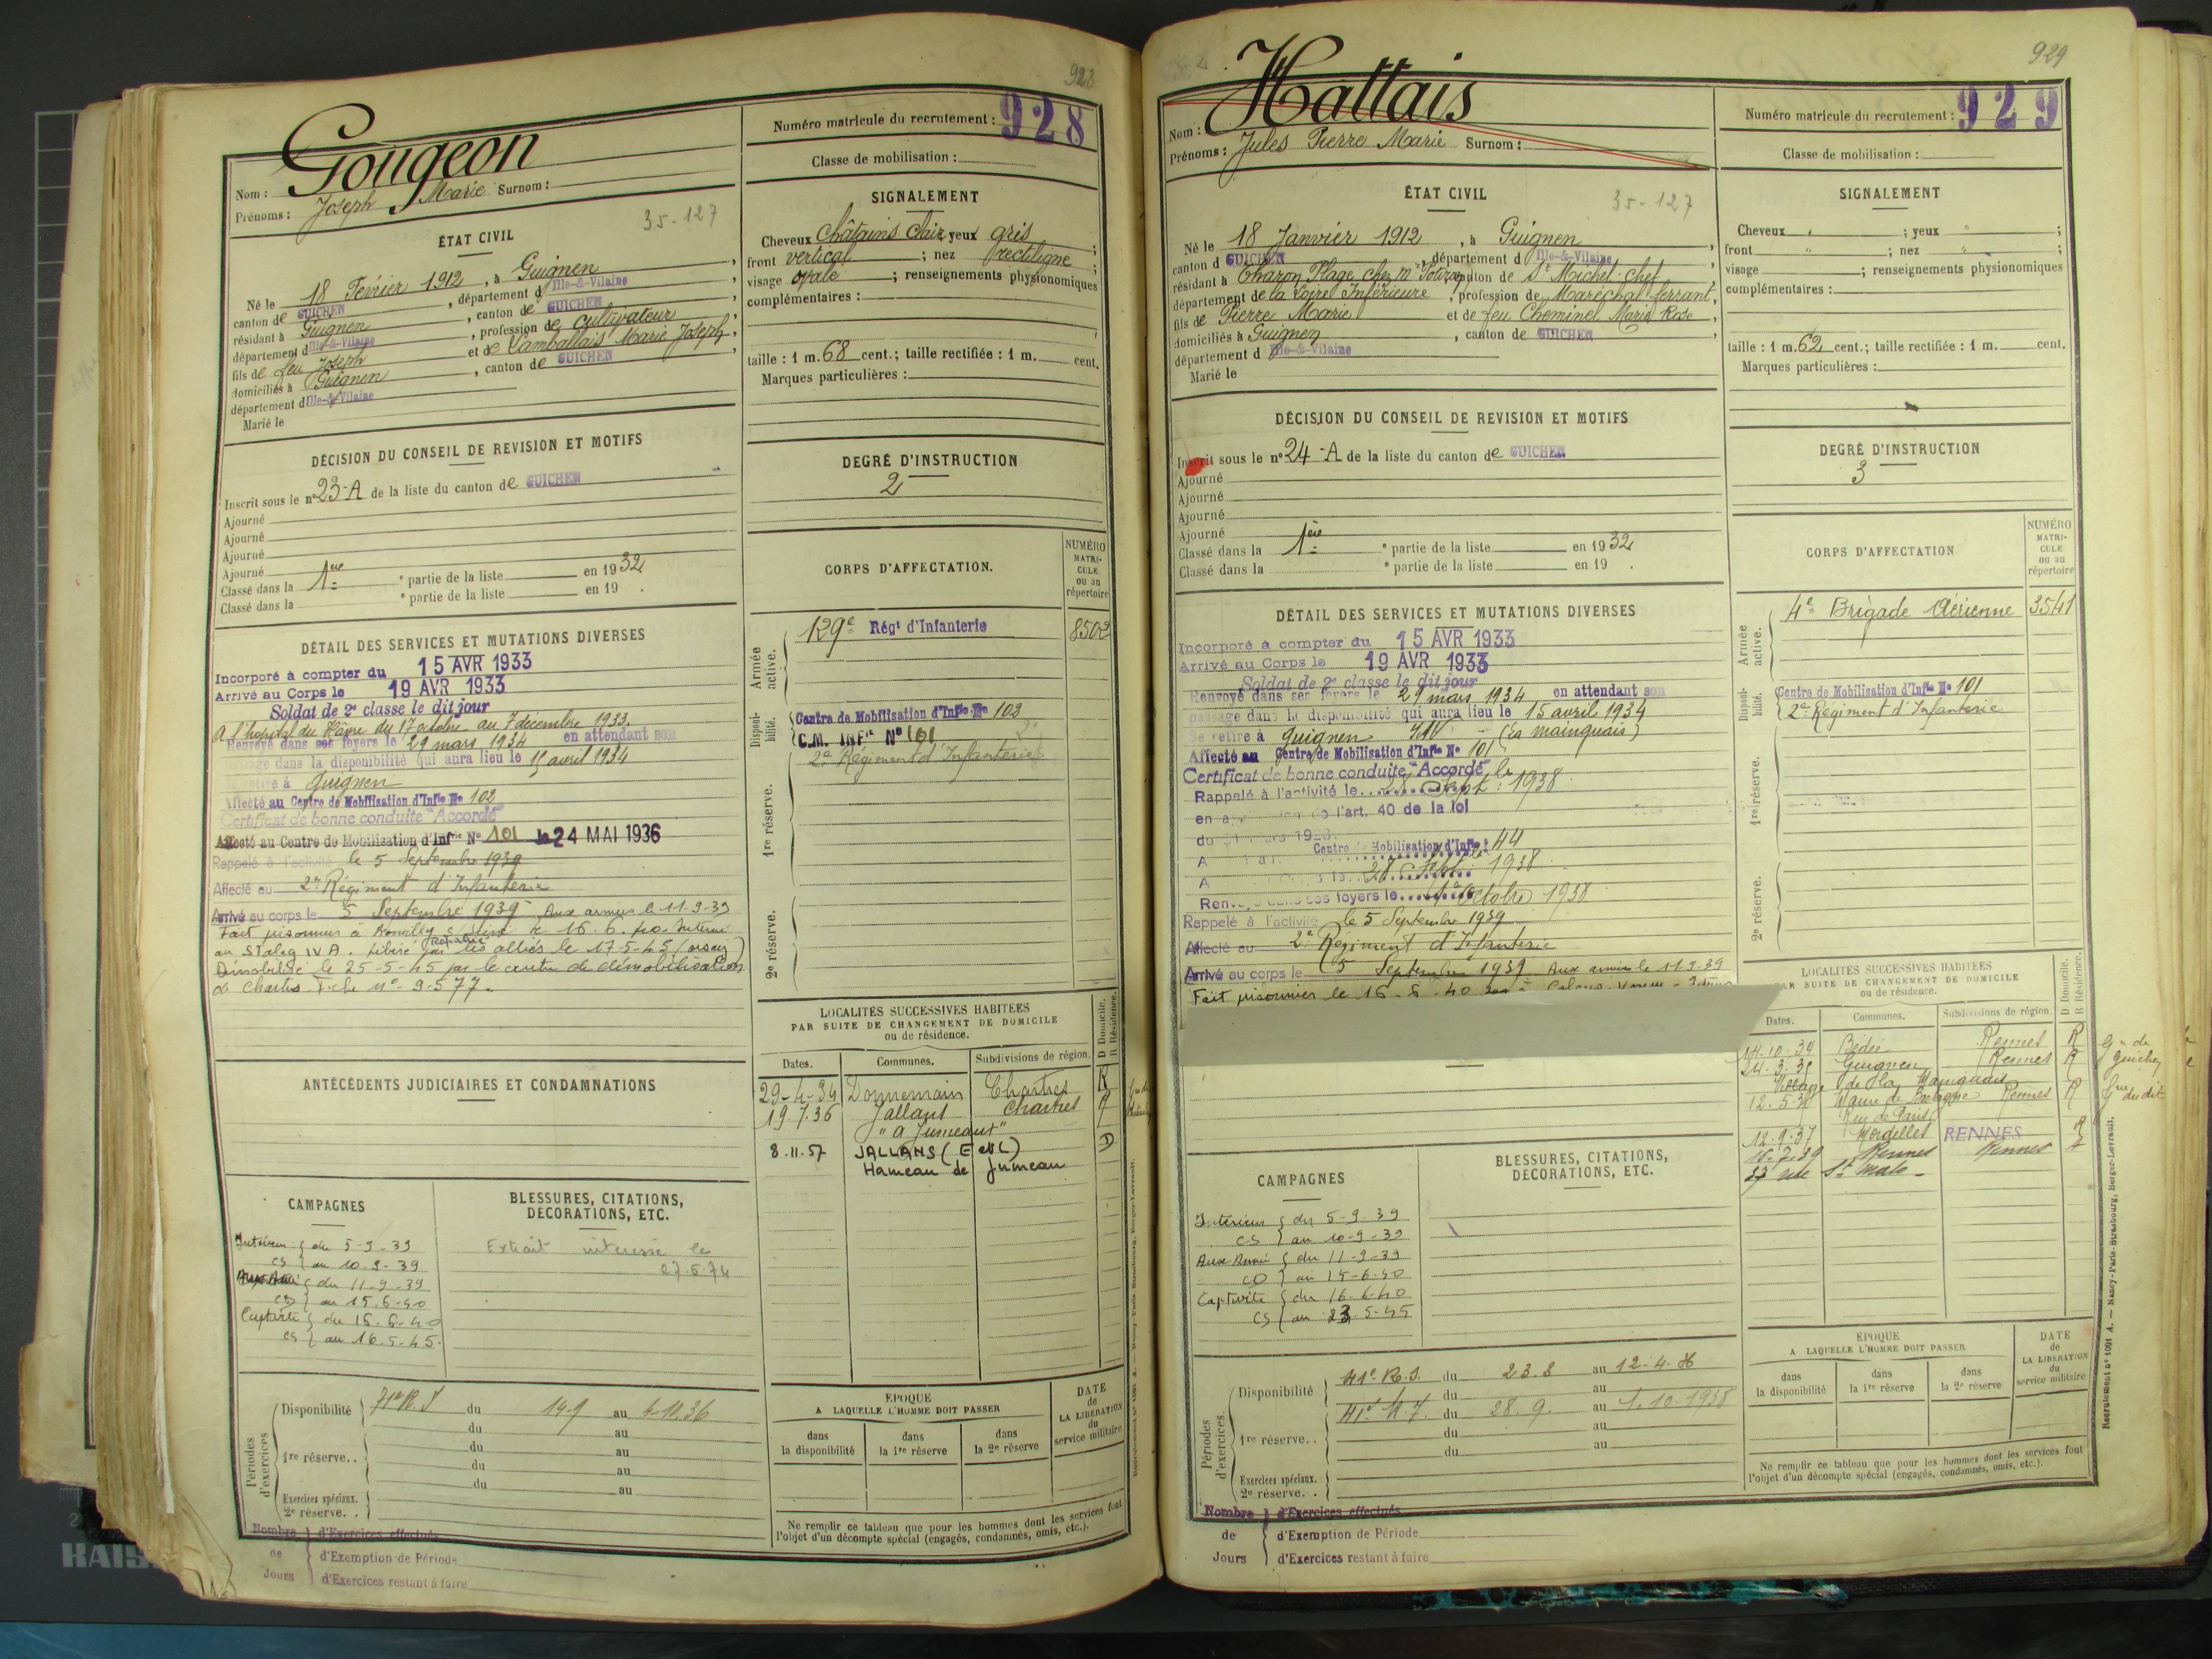 928
Gougeon
Nom :
Prénoms : Joseph Marie Surnom :
Numéro matricule du recrutement : 928
Classe de mobilisation :
35-127
ÉTAT CIVIL
Né le 18 Février 1912, à Guignen,
canton de GUICHEN, département d Ille-&-Vilaine,
résidant à Guignen, canton de GUICHEN,
département d Ille-&-Vilaine, profession de cultivateur,
fils de feu Joseph et de Lamballais Marie Joseph,
domiciliés à Guignen, canton de GUICHEN,
département d Ille-&-Vilaine
Marié le
SIGNALEMENT
Cheveux Châtains Clair yeux gris ;
front vertical ; nez rectiligne ;
visage ovale ; renseignements physionomiques
complémentaires :
taille : 1 m. 68 cent.; taille rectifiée : 1 m. cent.
Marques particulières :
DÉCISION DU CONSEIL DE REVISION ET MOTIFS
Inscrit sous le n° 23-A de la liste du canton de GUICHEN
Ajourné
Ajourné
Ajourné
Ajourné
Classé dans la 1ère e partie de la liste en 1932
Classé dans la e partie de la liste en 19 .
DEGRÉ D'INSTRUCTION
2
DÉTAIL DES SERVICES ET MUTATIONS DIVERSES
Incorporé à compter du 15 AVR 1933
Arrivé au Corps le 19 AVR 1933
Soldat de 2e classe le dit jour
A l'hopital du Hâvre du 17 octobre au 7 decembre 1933.
Renvoyé dans ses foyers le 29 mars 1934 en attendant son
passage dans la disponibilité qui aura lieu le 15 avril 1934
Se retire à Guignen
Affecté au Centre de Mobilisation d'Infie No 102
Certificat de bonne conduite "Accordé"
Affecté au Centre de Mobilisation d'Infrie No 101 le 24 MAI 1936
Rappelé à l'activité le 5 Septembre 1939
Affecté au 2e Régiment d'Infanterie
Arrivé au corps le 5 Septembre 1939 Aux armées le 11-9-39
Fait prisonnier à Romilly s/ Seine le 16.6.40. Interné
au Stalag IV A. Libéré par les alliés le 17-5-45
Rapatrié
Démobilisé le 25-5-45 par le centre de démobilisation
de Chartres. Fiche n° 9.577.
CORPS D'AFFECTATION.
NUMÉRO MATRICULE ou au répertoire
Armée active.
129e Régt d'Infanterie 8502
Disponibilité.
Centre de Mobilisation d'Infie No 102
C.M. INFie No 101
2e Régiment d'Infanterie
1re réserve.
2e réserve.
ANTÉCÉDENTS JUDICIAIRES ET CONDAMNATIONS
LOCALITÉS SUCCESSIVES HABITÉES
PAR SUITE DE CHANGEMENT DE DOMICILE
ou de résidence.
D Domicile.
R Résidence.
Dates. Communes. Subdivisions de région.
29-4-34 Donnemain Chartres R
19.7.36 Jallans Chartres R
"à Jumeaux"
8.11.57 JALLANS (E et L) D
Hameau de Jumeau
CAMPAGNES
Intérieur du 5-9-39
CS au 10-9-39
Aux Armées du 11-9-39
CD au 15.6-40
Captivité du 16-6-40
CS au 16.5.45.
BLESSURES, CITATIONS,
DÉCORATIONS, ETC.
Extrait interessé le
27.6.74
Périodes d'exercices
Disponibilité 71e R.I du 14-9 au 4-10.36
du au
1re réserve. . du au
du au
du au
Exercices spéciaux.
2e réserve. .
EPOQUE
A LAQUELLE L'HOMME DOIT PASSER
dans la disponibilité
dans la 1re réserve
dans la 2e réserve
DATE de LA LIBÉRATION du service militaire
Ne remplir ce tableau que pour les hommes dont les services font
l'objet d'un décompte spécial (engagés, condamnés, omis, etc.).
Nombre de Jours
d'Exercices effectués
d'Exemption de Période
d'Exercices restant à faire
929
Hattais
Nom :
Prénoms : Jules Pierre Marie Surnom :
Numéro matricule du recrutement : 929
Classe de mobilisation :
35-127
ÉTAT CIVIL
Né le 18 Janvier 1912, à Guignen,
canton d GUICHEN, département d Ille-&-Vilaine,
résidant à Tharon Plage chez Mr canton de St Michel-Chef
département de la Loire Inférieure, profession de Maréchal ferrant,
fils de Pierre Marie et de feu Cheminel Marie Rose,
domiciliés à Guignen, canton de GUICHEN
département d Ille-&-Vilaine
Marié le
SIGNALEMENT
Cheveux " ; yeux " ;
front " ; nez " ;
visage ; renseignements physionomiques
complémentaires :
taille : 1 m. 62 cent.; taille rectifiée : 1 m. cent.
Marques particulières :
DÉCISION DU CONSEIL DE REVISION ET MOTIFS
Inscrit sous le n° 24-A de la liste du canton de GUICHEN
Ajourné
Ajourné
Ajourné
Ajourné
Classé dans la 1ère e partie de la liste en 1932
Classé dans la e partie de la liste en 19 .
DEGRÉ D'INSTRUCTION
3
DÉTAIL DES SERVICES ET MUTATIONS DIVERSES
Incorporé à compter du 15 AVR 1933
Arrivé au Corps le 19 AVR 1933
Soldat de 2e classe le dit jour
Renvoyé dans ses foyers le 29 mars 1934 en attendant son
passage dans la disponibilité qui aura lieu le 15 avril 1934
Se retire à Guignen (la mainguais)
Affecté au Centre de Mobilisation d'Infie No 101
Certificat de bonne conduite "Accordé"
Rappelé à l'activité le 28 Sept. 1938
de l'art. 40 de la loi
Centre de Mobilisation d'Infie 41
28 Sept. 1938
foyers le 1er Octobre 1938
Rappelé à l'activité le 5 Septembre 1939
Affecté au 2e Régiment d'Infanterie
Arrivé au corps le 5 Septembre 1939 Aux armées le 11-9-39
Fait prisonnier le 16-6-40
CORPS D'AFFECTATION
NUMÉRO MATRICULE ou au répertoire
Armée active.
4e Brigade Aérienne 3541
Disponibilité.
Centre de Mobilisation d'Infie No 101
2e Régiment d'Infanterie
1re réserve.
2e réserve.
LOCALITÉS SUCCESSIVES HABITÉES
PAR SUITE DE CHANGEMENT DE DOMICILE
ou de résidence.
D Domicile.
R Résidence.
Dates. Communes. Subdivisions de région.
14-10-34 Bédée Rennes R
24-3-35 Guignen Rennes R
Village de la Mainguais
12.5.36 Maure de Bretagne Rennes R
Rue de Paris
12.9.37 Mordelles RENNES R
16.7.39 Rennes Rennes R
57 rue St Malo
Gie de Guichen
Gie du dit
CAMPAGNES
Intérieur du 5-9-39
CS au 10-9-39
Aux Armées du 11-9-39
CD au 15-6-40
Captivité du 16-6-40
CS au 23 5-45
BLESSURES, CITATIONS,
DÉCORATIONS, ETC.
Périodes d'exercices.
Disponibilité 41e R.I. du 23.8 au 12-4-36
du au
41e du 28.9. au 1.10.1938
1re réserve. . du au
du au
Exercices spéciaux.
2e réserve. .
EPOQUE
A LAQUELLE L'HOMME DOIT PASSER
dans la disponibilité
dans la 1re réserve
dans la 2e réserve
DATE de LA LIBÉRATION du service militaire
Ne remplir ce tableau que pour les hommes dont les services font
l'objet d'un décompte spécial (engagés, condamnés, omis, etc.).
Nombre de Jours
d'Exercices effectués
d'Exemption de Période
d'Exercices restant à faire
Recrutement n° 1001 A. — Nancy-Paris-Strasbourg, Berger-Levrault.